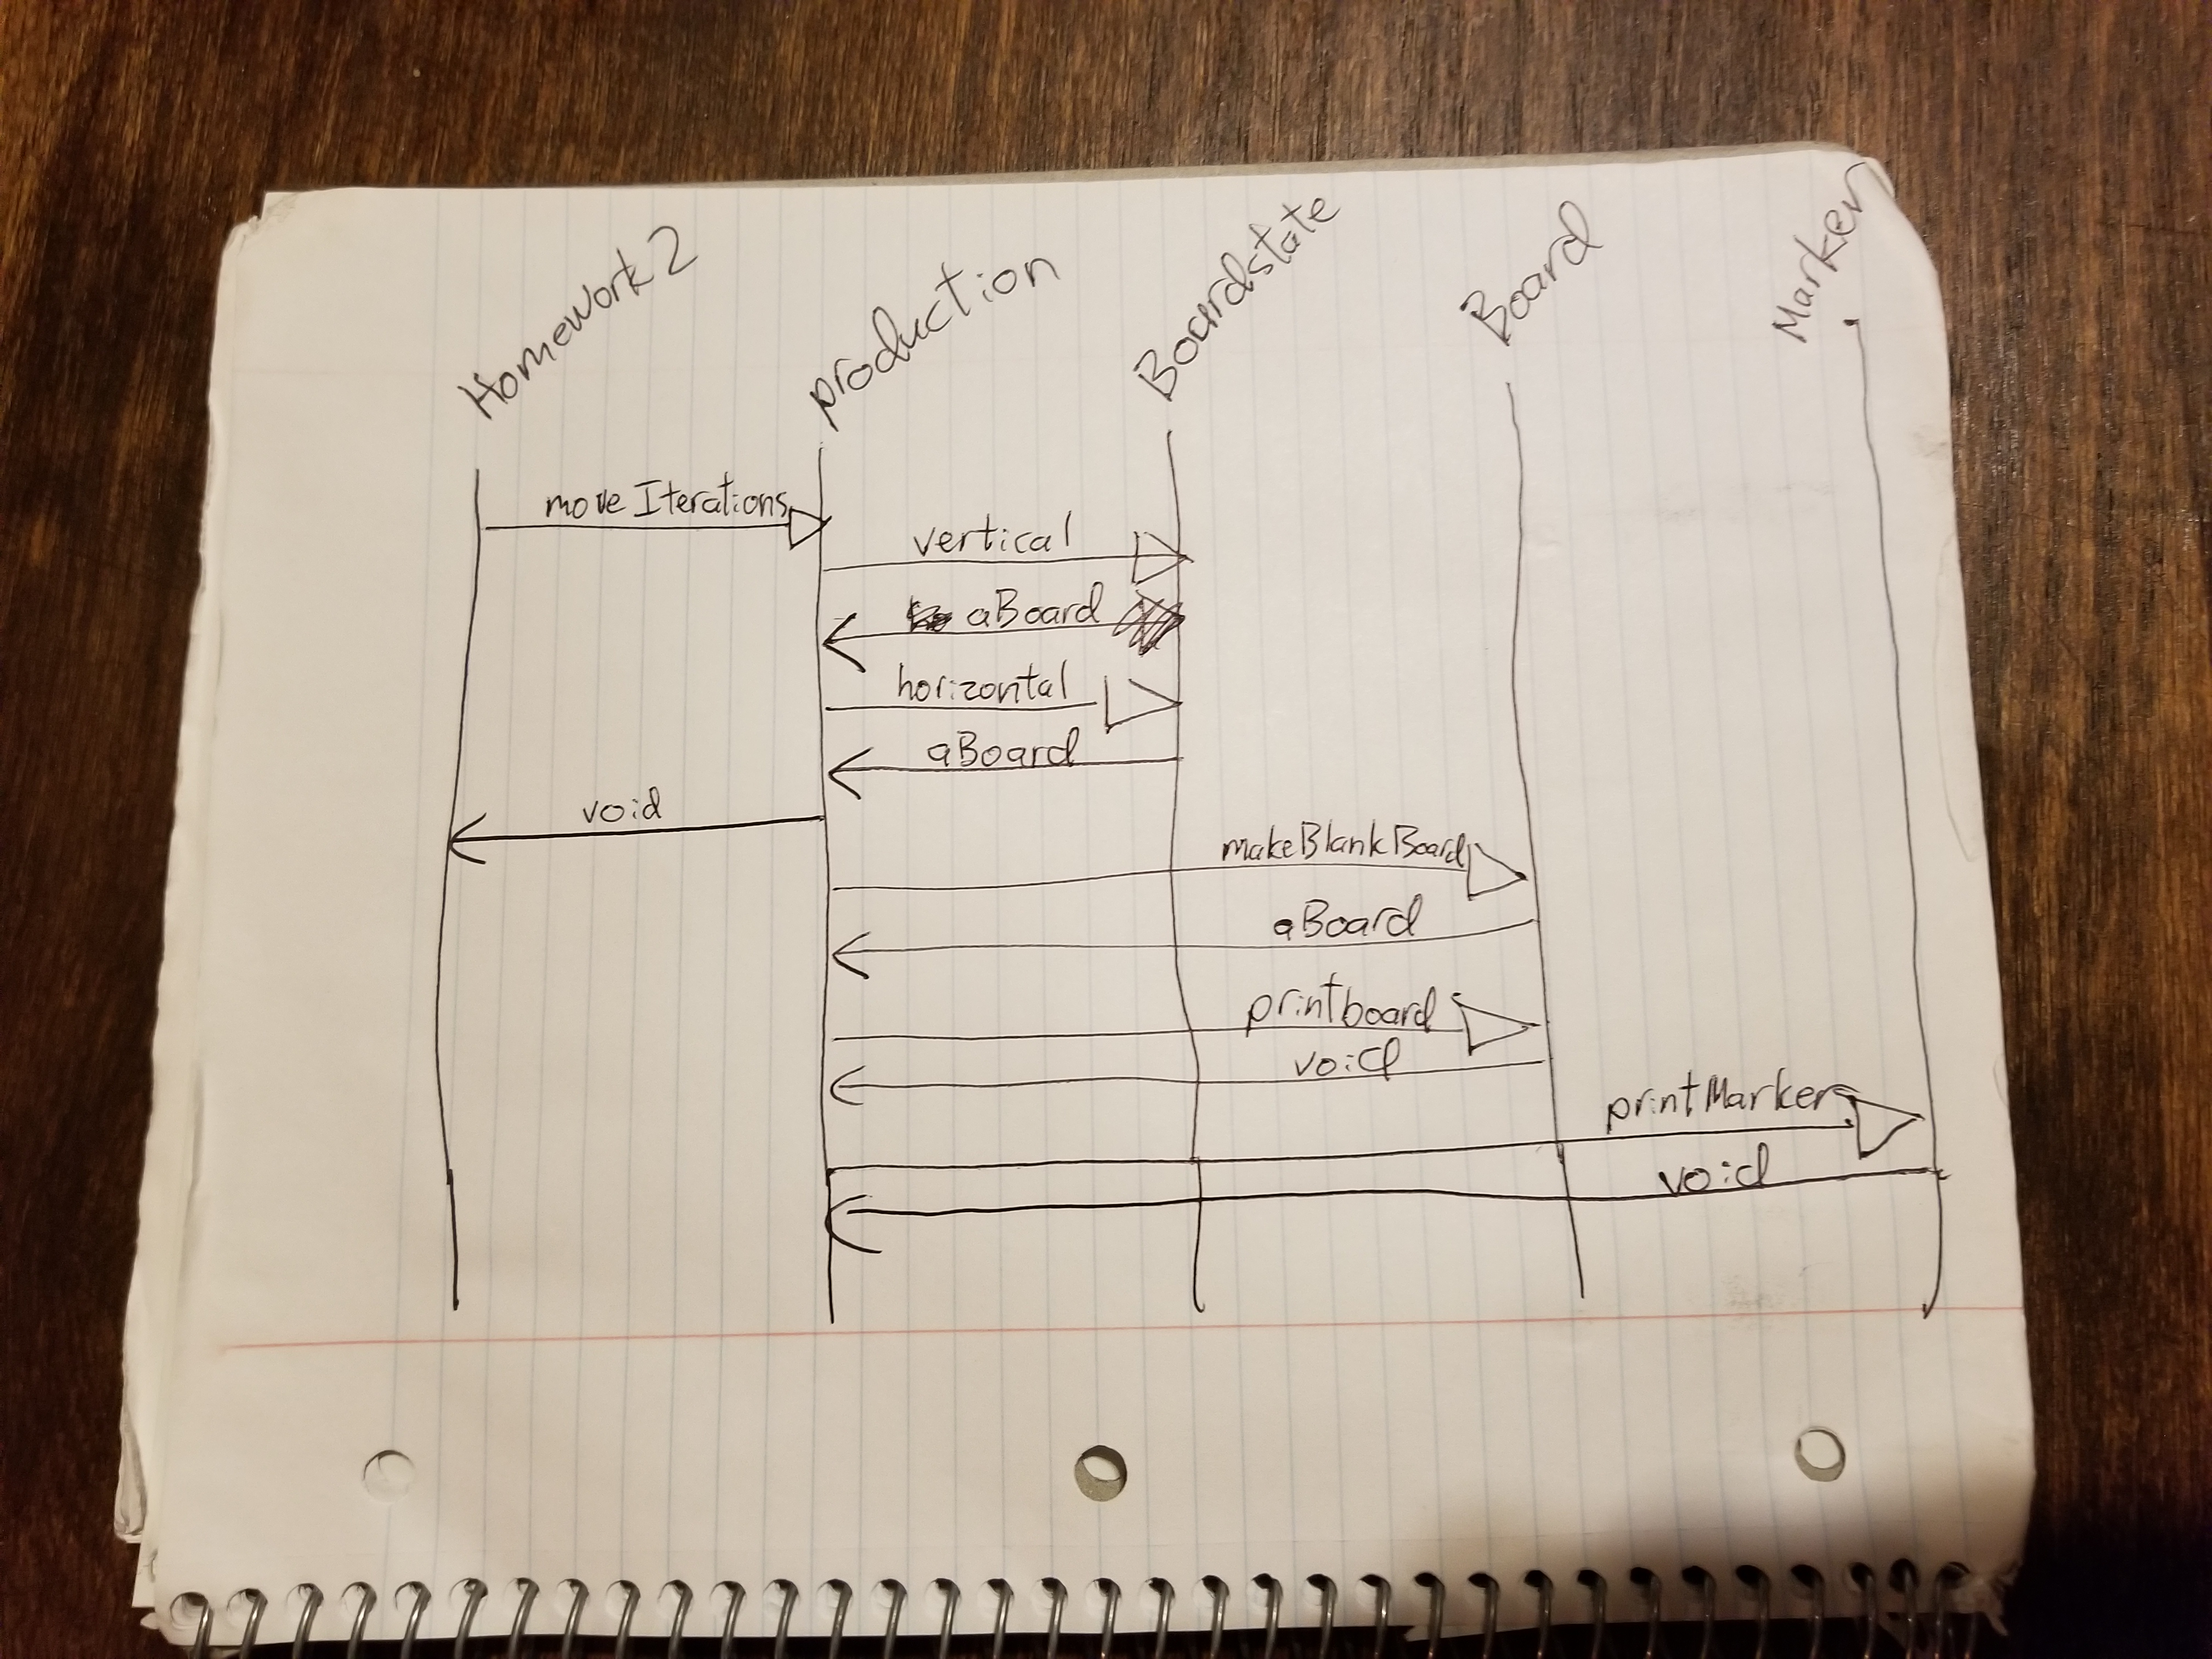 Homework2
production
Boardstate
Board
Marker
moveIterations
vertical
aBoard
horizontal
aBoard
void
makeBlankBoard
aBoard
printboard
void
printMarker
void